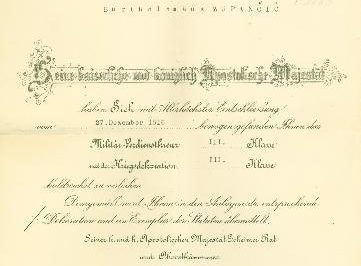 Bartholomäus ZUPANČIČ
Seine kaiserliche und königlich Apostolische Majestät
haben Sich mit Allerhöchster Entschließung
vom 27. Dezember 1916 bewogen gefunden Ihnen das
Militär-Verdienstkreuz III. Klasse
mit der Kriegsdekoration III. Klasse
huldreichst zu verleihen.
Demgemäß wird Ihnen in den Anlagen die entsprechende
Dekoration und ein Exemplar der Statuten übermittelt.
Seiner k. und k. Apostolischen Majestät Geheimer Rat
und Oberstkämmerer